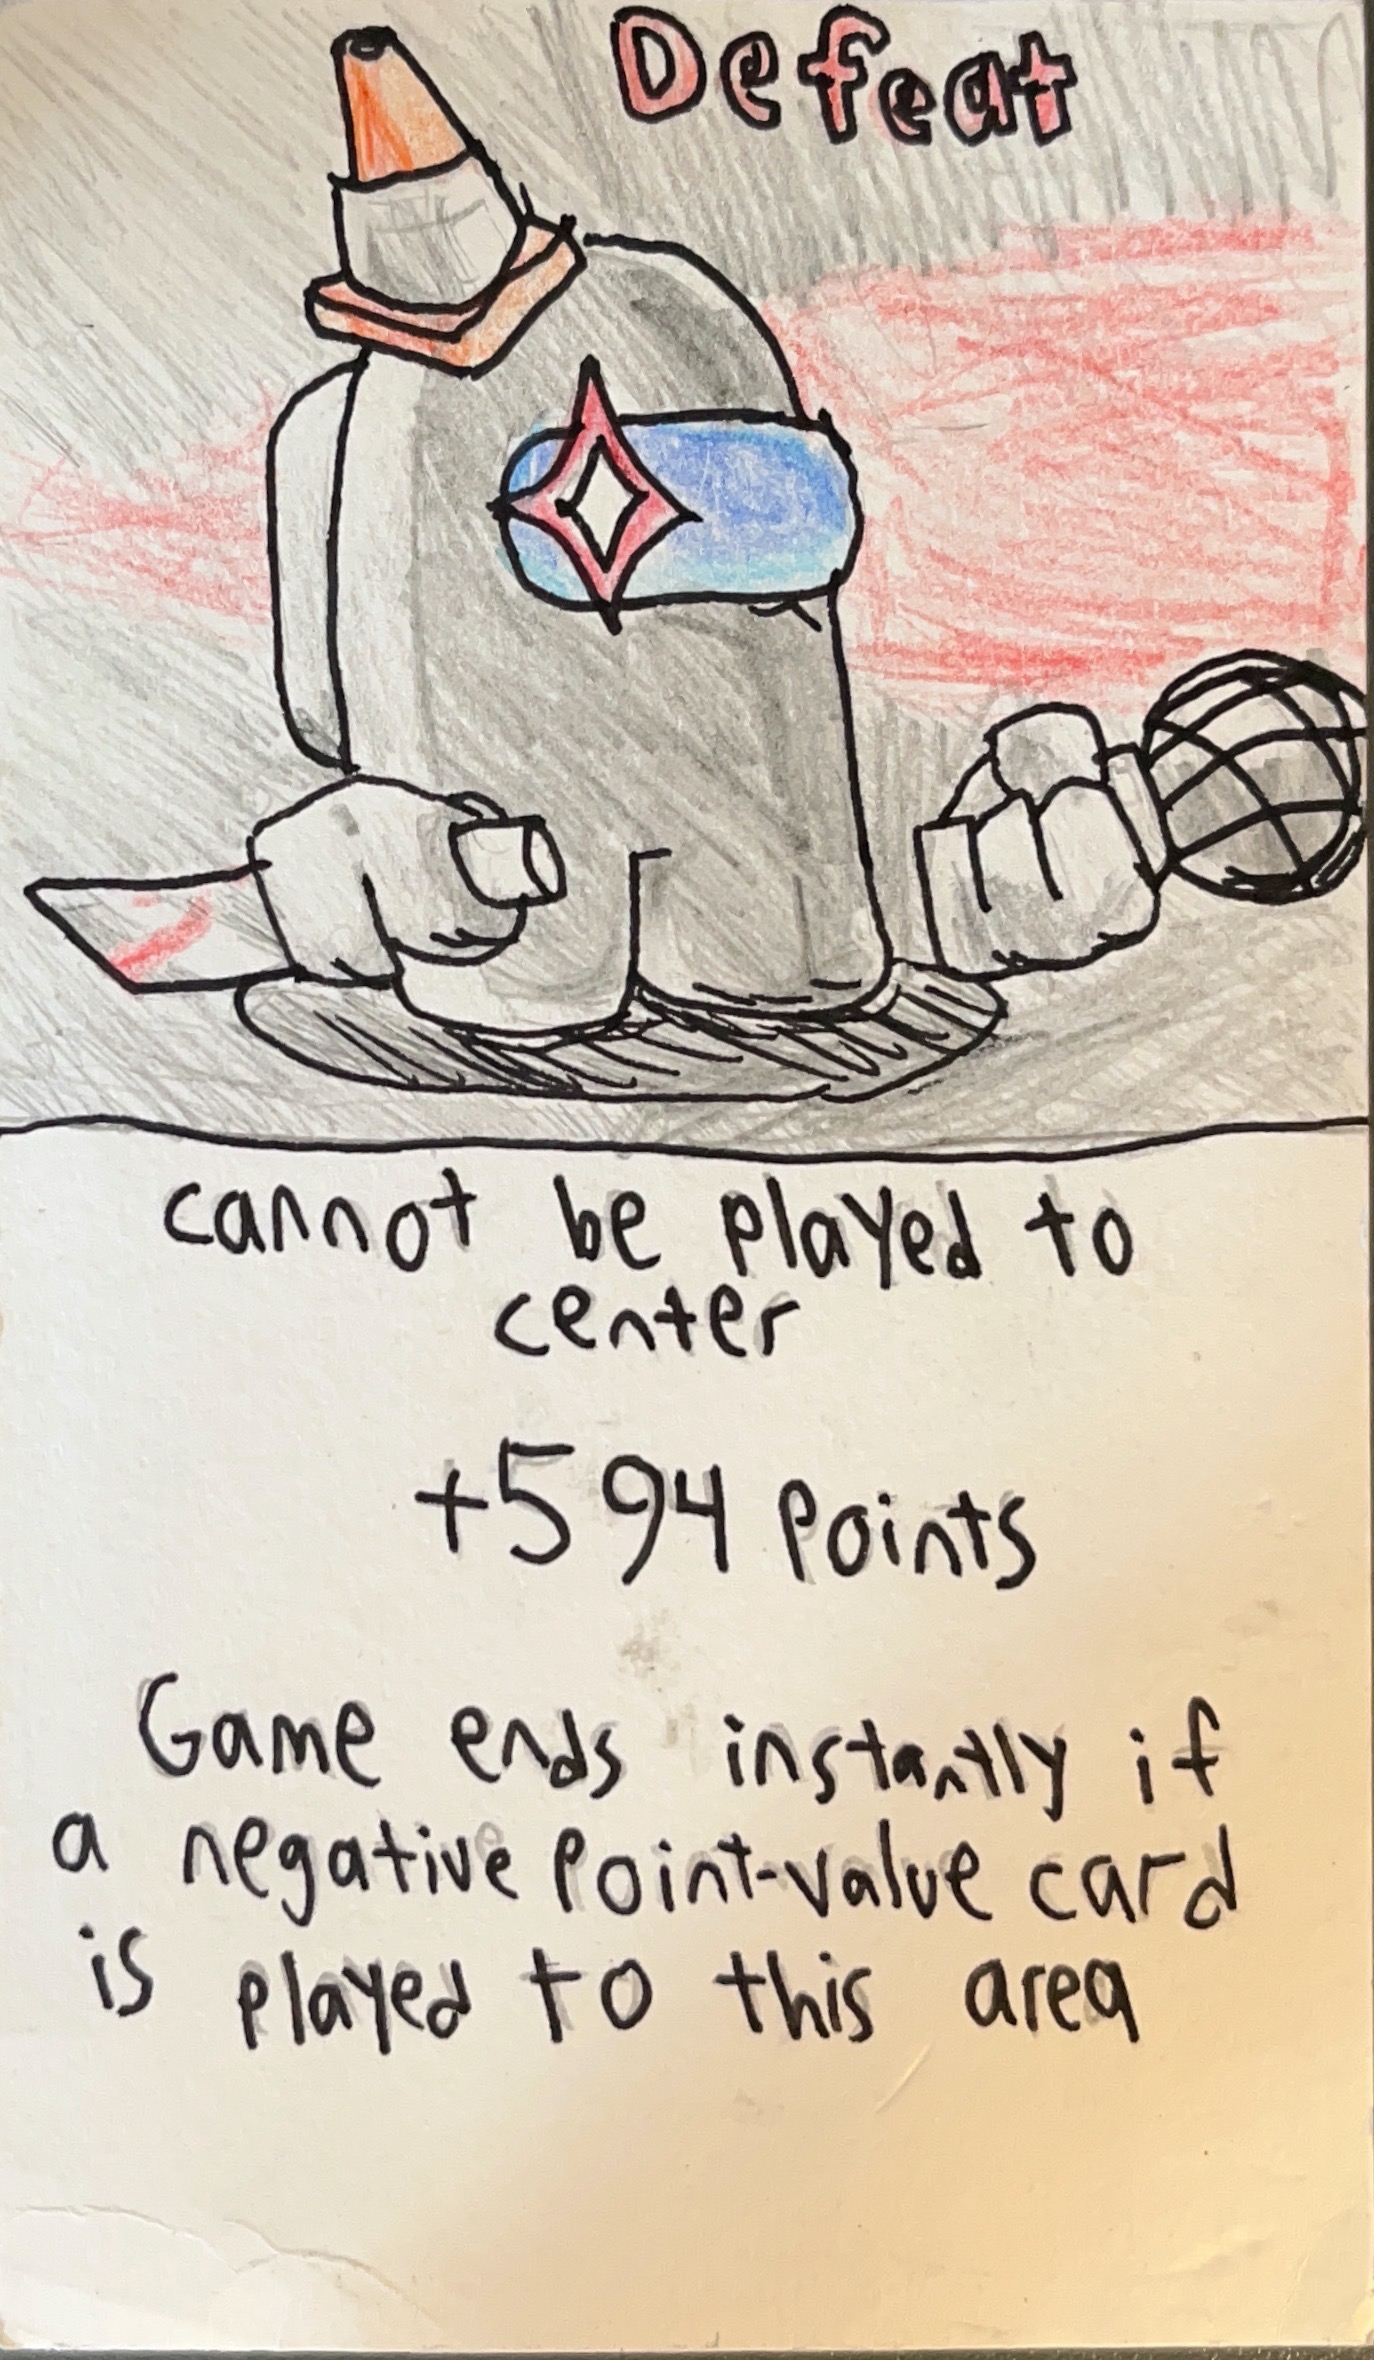 Defeat
cannot be played to
center
+594 points
Game ends instantly if
a negative point-value card
is played to this area